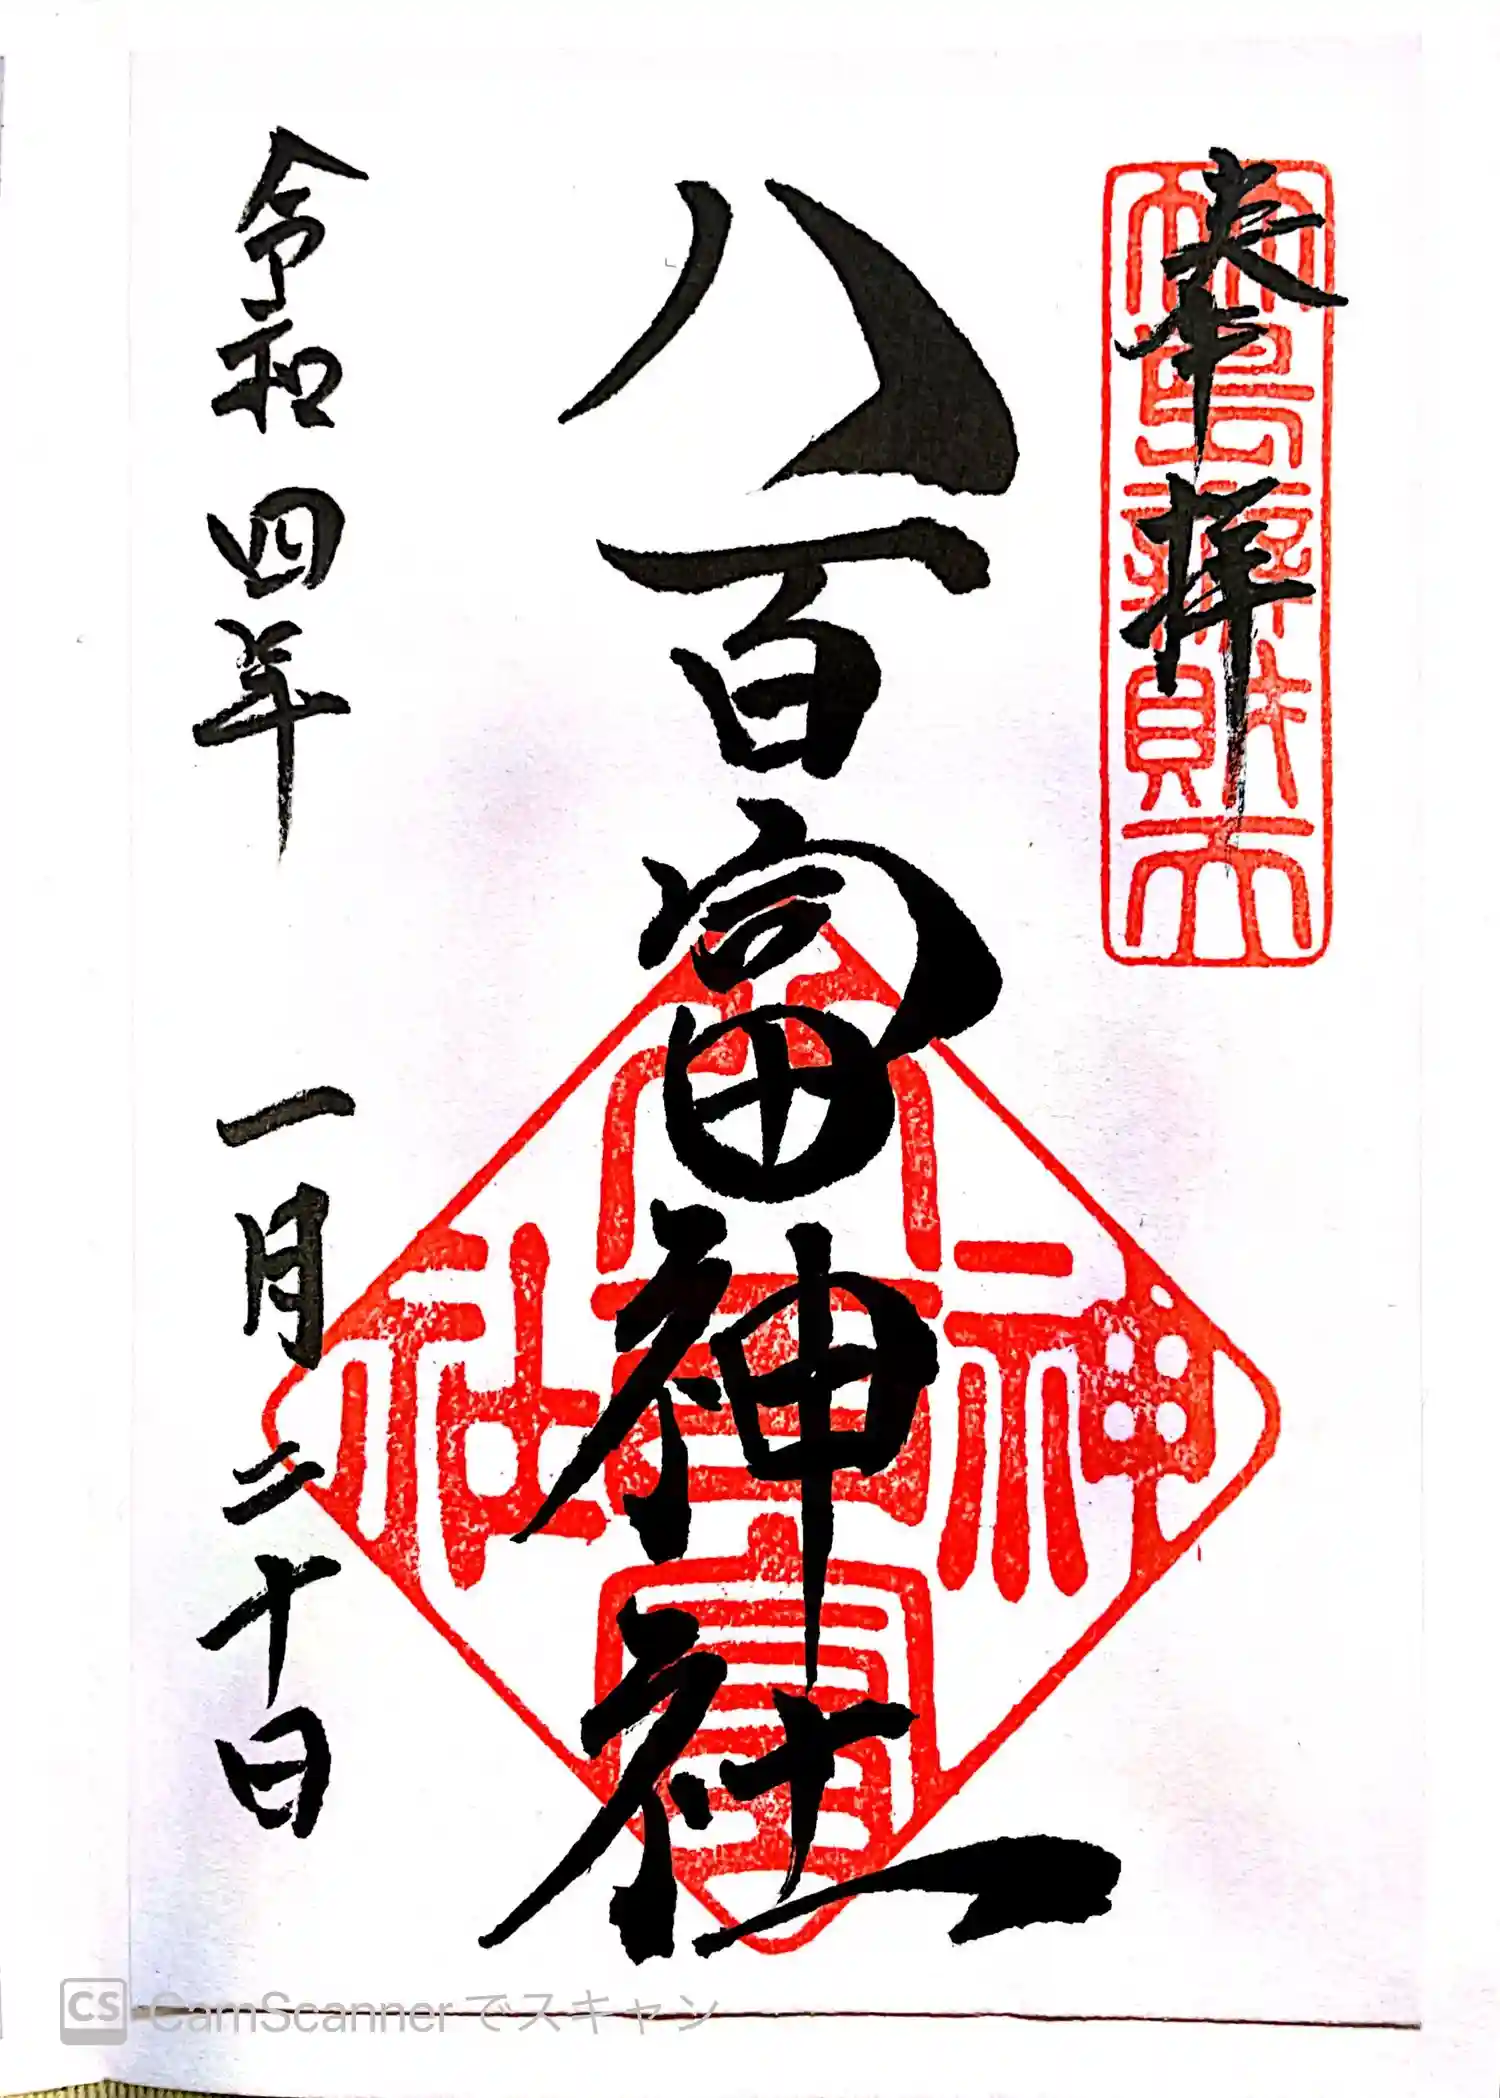 奉拝
竹島辨財天
八百富神社
八百富神社
令和四年 一月二十日
CS CamScannerでスキャン